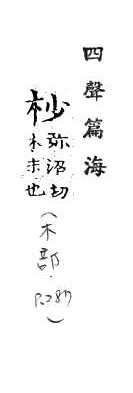 四聲篇海
杪弥沼切木末也(木部.)